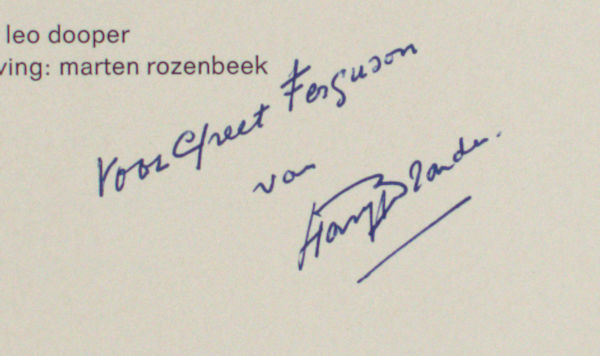 leo dooper
ving: marten rozenbeek
Voor Greet Ferguson
van
Harry Zander.